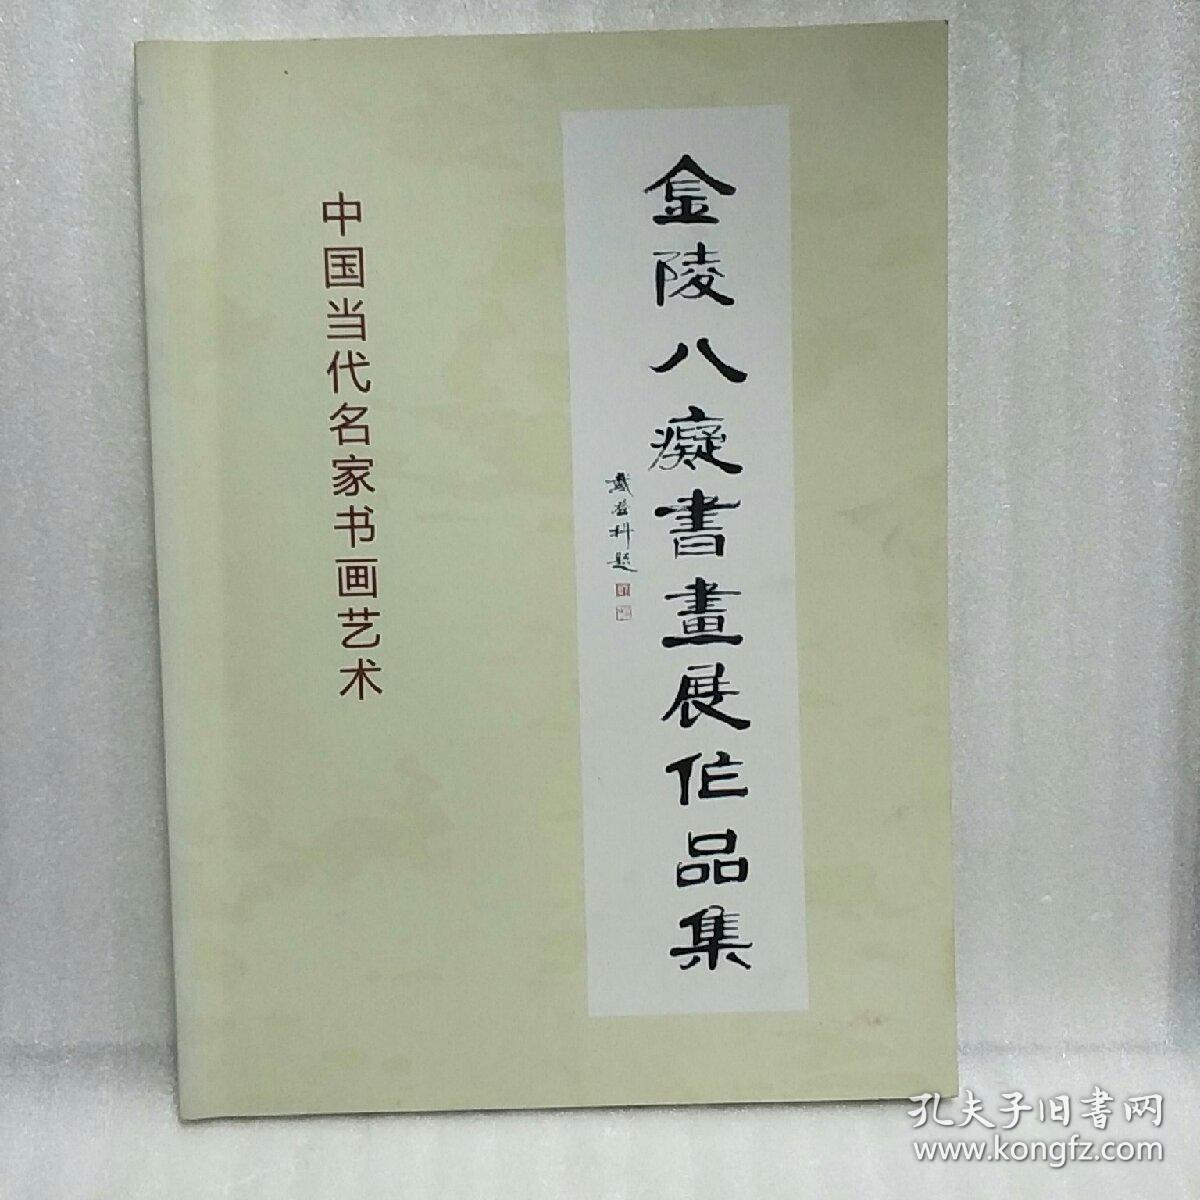 金陵八癡書畫展作品集
題
中国当代名家书画艺术
孔夫子旧書网
www.kongfz.com